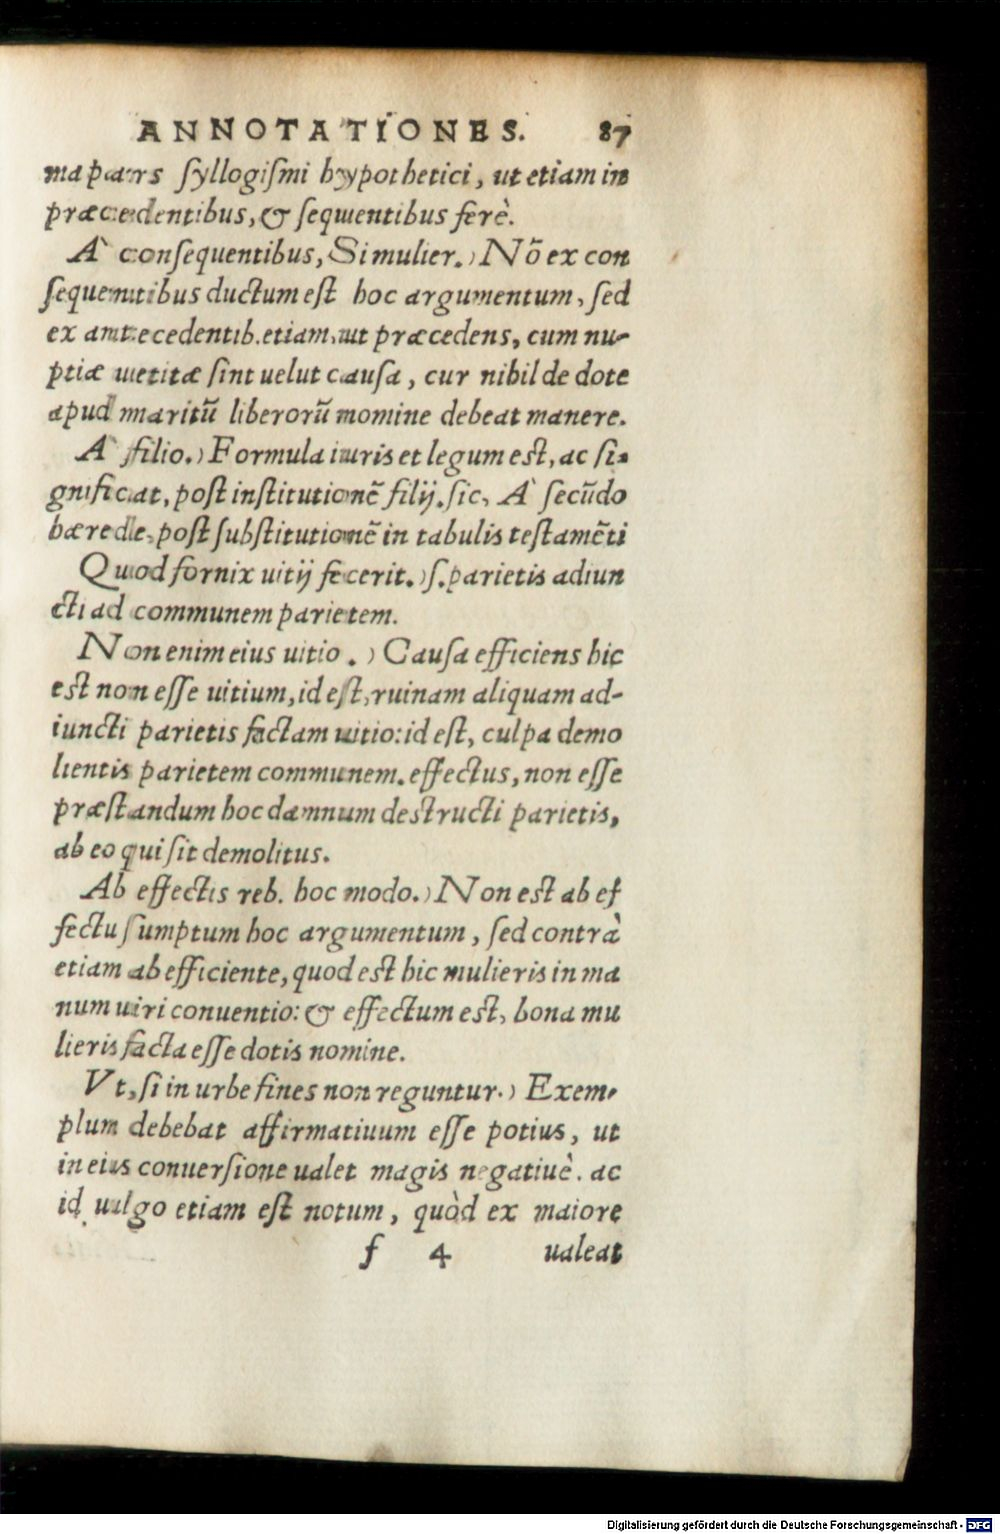 ANNOTATIONES. 87
ma pars syllogismi hypothetici, ut etiam in
præcedentibus, & sequentibus ferè.
A` consequentibus, Si mulier.) Nō ex con
sequentibus ductum est hoc argumentum, sed
ex antecedentib. etiam, ut præcedens, cum nu-
ptiæ uetitæ sint uelut causa, cur nihil de dote
apud maritū liberorū nomine debeat manere.
A` filio.) Formula iuris et legum est, ac si-
gnificat, post institutionē filij. sic, A` secūdo
hærede, post substitutionē in tabulis testamēti
Quod fornix uitij fecerit.) s. parietis adiun
cti ad communem parietem.
Non enim eius uitio.) Causa efficiens hic
est non esse uitium, id est, ruinam aliquam ad-
iuncti parietis factam uitio: id est, culpa demo
lientis parietem communem. effectus, non esse
præstandum hoc damnum destructi parietis,
ab eo qui sit demolitus.
Ab effectis reb. hoc modo.) Non est ab ef
fectu sumptum hoc argumentum, sed contrà
etiam ab efficiente, quod est hic mulieris in ma
num uiri conuentio: & effectum est, bona mu
lieris facta esse dotis nomine.
Vt, si in urbe fines non reguntur.) Exem-
plum debebat affirmatiuum esse potius, ut
in eius conuersione ualet magis negatiuè. ac
id uulgo etiam est notum, quòd ex maiore
f 4 ualeat
Digitalisierung gefördert durch die Deutsche Forschungsgemeinschaft - DFG